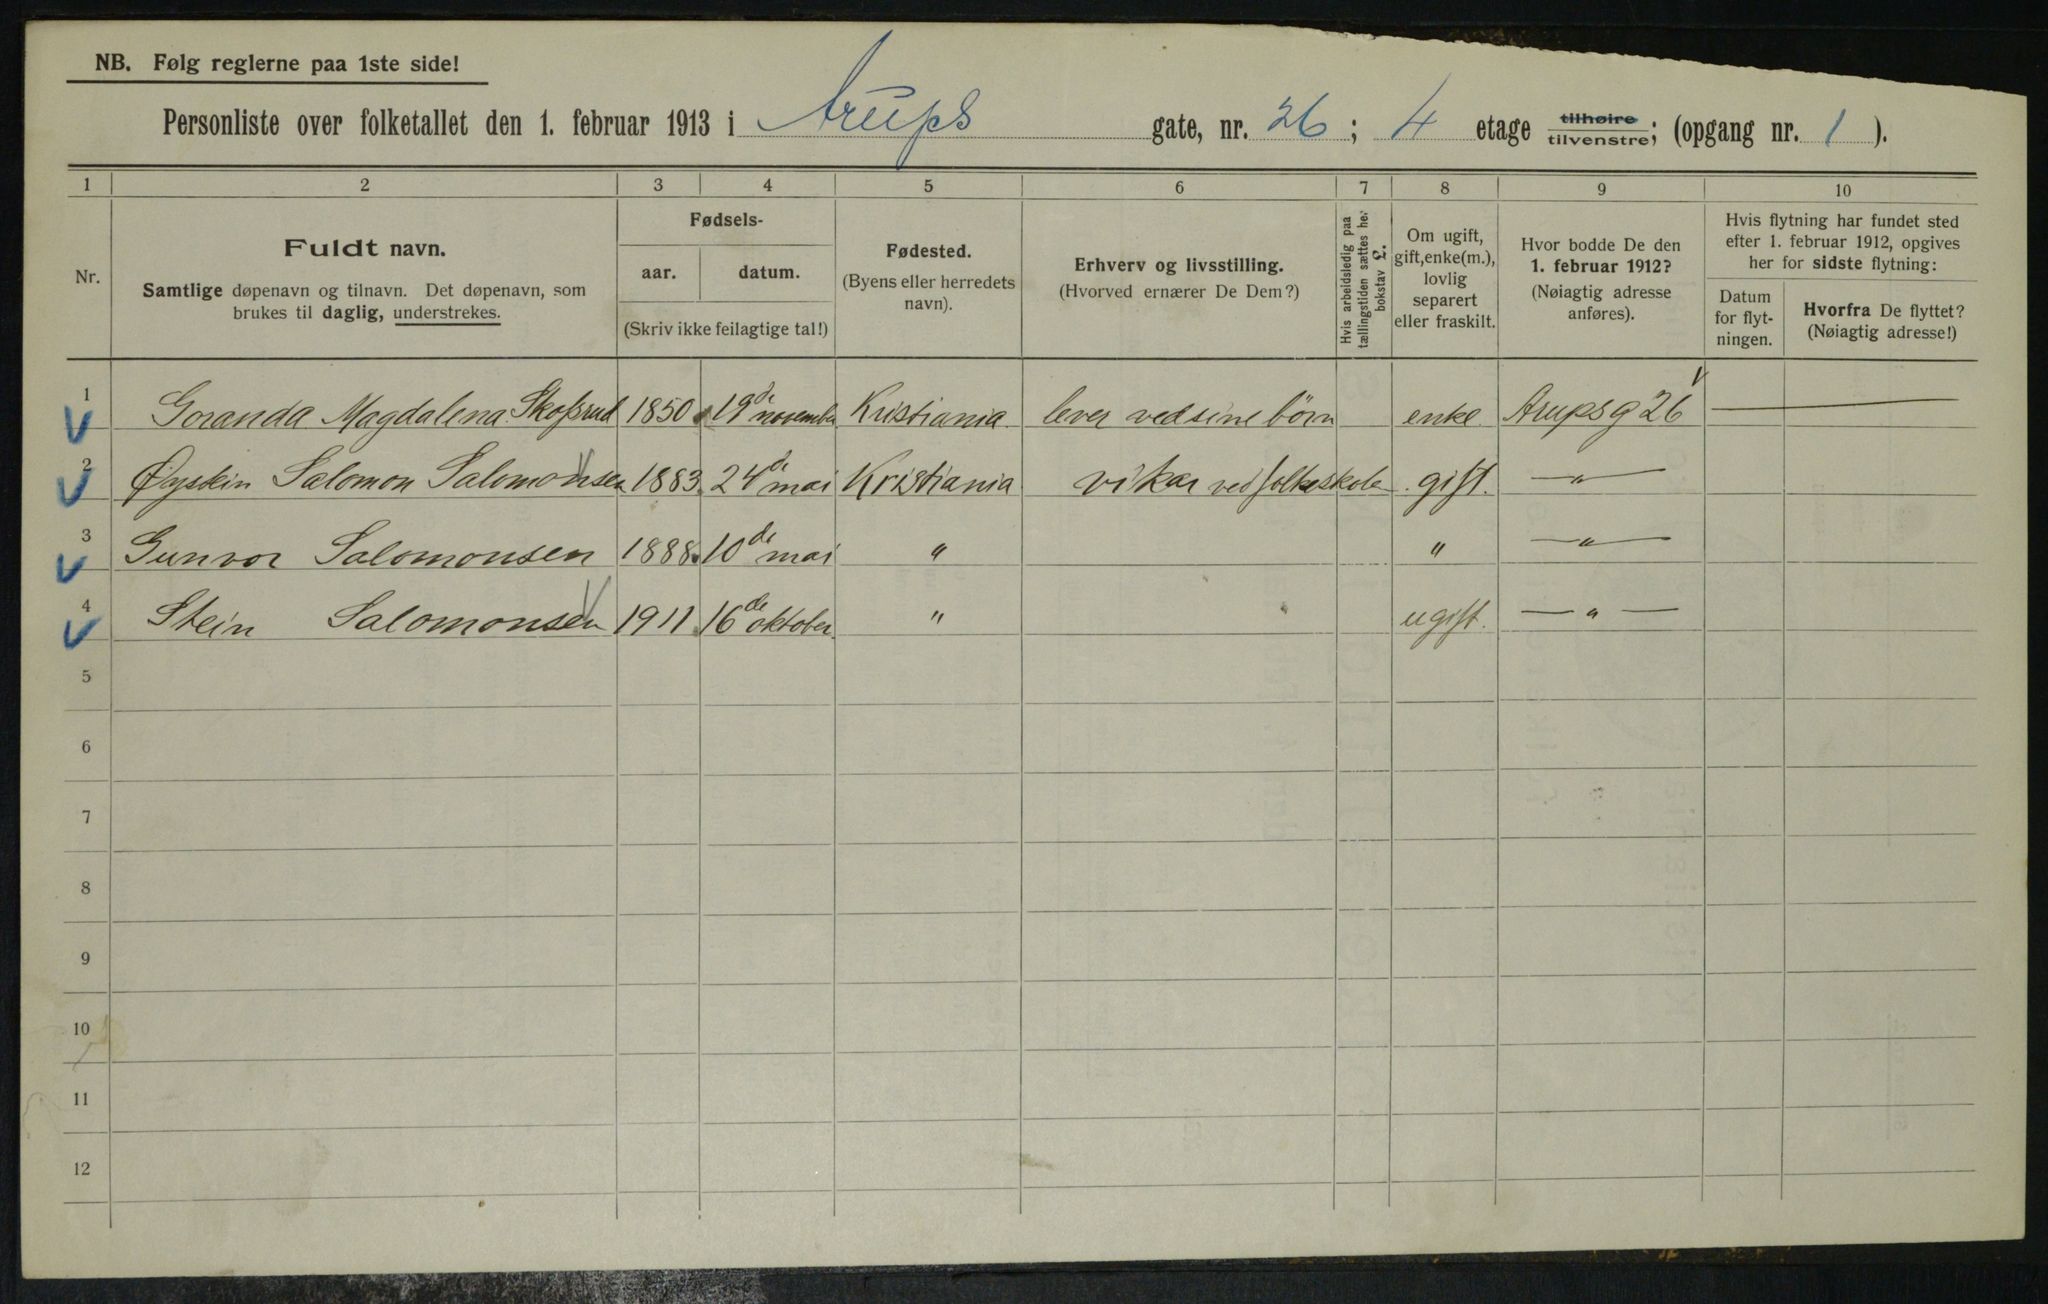 NB. Følg reglerne paa 1ste side!
Personliste over folketallet den 1. februar 1913 i Arups gate, nr. 26; 4 etage tilhøire tilvenstre; (opgang nr. 1).
1 2 3 4 5 6 7 8 9 10
Nr.
Fuldt navn.
Samtlige døpenavn og tilnavn. Det døpenavn, som
brukes til daglig, understrekes.
Fødsels-
aar. datum.
(Skriv ikke feilagtige tal!)
Fødested.
(Byens eller herredets
navn).
Erhverv og livsstilling.
(Hvorved ernærer De Dem?)
Hvis arbeidsledig paa
tællingstiden sættes her
bokstav L.
Om ugift,
gift, enke(m.),
lovlig
separert
eller fraskilt.
Hvor bodde De den
1. februar 1912?
(Nøiagtig adresse
anføres).
Hvis flytning har fundet sted
efter 1. februar 1912, opgives
her for sidste flytning:
Datum
for flyt-
ningen.
Hvorfra De flyttet?
(Nøiagtig adresse!)
1 Goranda Magdalena Skofsrud 1850 19de november Kristiania. lever ved sine børn enke Arupsg 26 —
2 Øystein Salomon Salomonsen 1883 24de mai Kristiania vikar ved folkeskolen gift. — " —
3 Gunvor Salomonsen 1888 10de mai " " — " —
4 Stein Salomonsen 1911 16de oktober " ugift. — " —
5
6
7
8
9
10
11
12